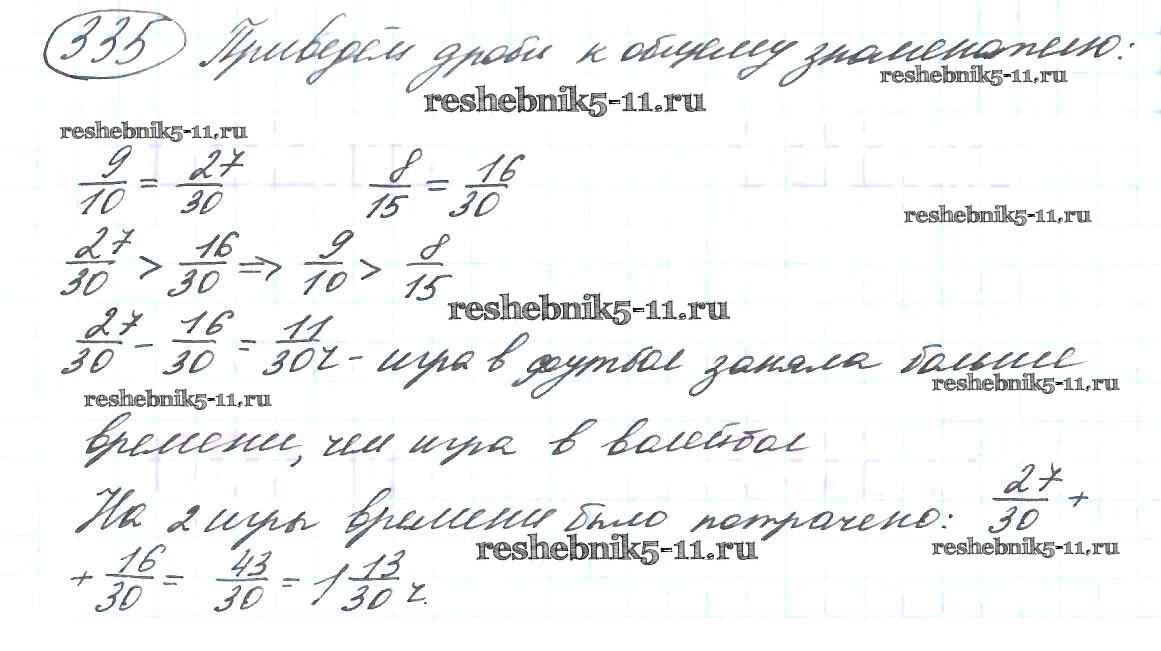 335 Приведём дроби к общему знаменателю:
reshebnik5-11.ru
reshebnik5-11.ru
reshebnik5-11.ru
9/10 = 27/30 8/15 = 16/30
reshebnik5-11.ru
27/30 > 16/30 => 9/10 > 8/15
reshebnik5-11.ru
27/30 - 16/30 = 11/30 ч - игра в футбол заняла больше
reshebnik5-11.ru
reshebnik5-11.ru
времени, чем игра в волейбол
На 2 игры времени было потрачено: 27/30 +
reshebnik5-11.ru
reshebnik5-11.ru
+ 16/30 = 43/30 = 1 13/30 ч.